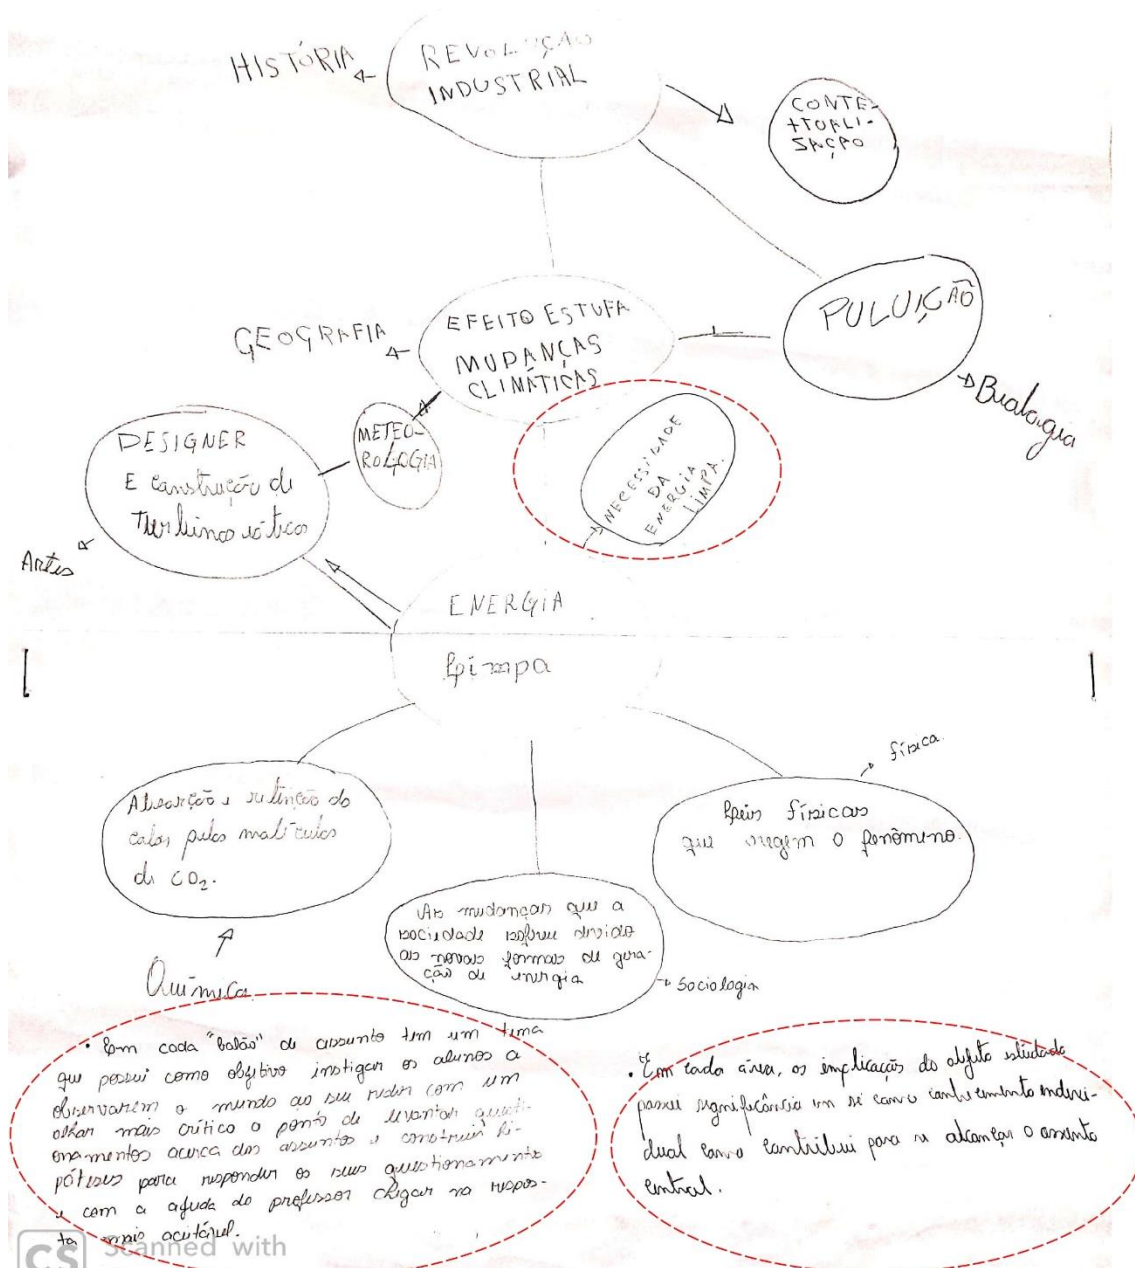 HISTÓRIA
REVOLUÇÃO
INDUSTRIAL
CONTE-
XTUALI-
SAÇÃO
PULUIÇÃO
Biologia
GEOGRAFIA
EFEITO ESTUFA
MUDANÇAS
CLIMÁTICAS
METEO-
ROLOGIA
NECESSIDADE
DA
ENERGIA
LIMPA.
DESIGNER
E construção de
Turbinas eólicas
Artes
ENERGIA
Limpa
Absorção e retenção do
calor pelas moléculas
de CO₂.
Química
As mudanças que a
sociedade sofreu devido
as novas formas de gera-
ção de energia
Sociologia
física.
Leis físicas
que regem o fenômeno.
• Em cada "balão" de assunto tem um tema
que possui como objetivo instigar os alunos a
observarem o mundo ao seu redor com um
olhar mais crítico a ponto de levantar questi-
onamentos acerca dos assuntos e construir hi-
póteses para responder os seus questionamento
e com a ajuda do professor chegar na respos-
ta mais aceitável.
• Em cada área, as implicações do objeto estudado
possui significância em si como conhecimento indivi-
dual como contribui para se alcançar o assunto
central.
CS Scanned with